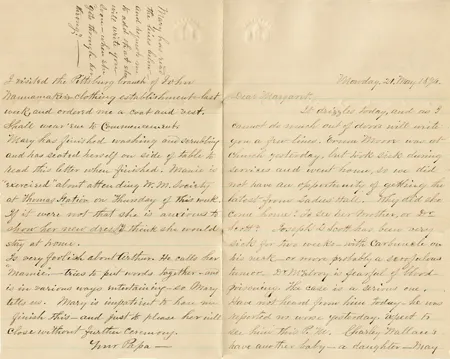 Monday, 21, May 1894.
Dear Margaret:
It drizzles today, and as I
cannot do much out of doors will write
you a few lines. Emma Moore was at
church yesterday, but took sick during
services and went home, so we did
not have an opportunity of getting the
latest from Ladies Hall. Why did she
come home? To see her Mother, or Dr.
Scott? Joseph S. Scott has been very
sick for two weeks with Carbuncle on
his neck or more probably a scrofulous
tumor. Dr. McElroy is fearful of blood-
poisoning. the case is a serious one.
Have not heard from him today. he was
reported no worse yesterday. expect to
see him this P.M. Charley Wallace's
have another baby - a daughter - May
I visited the Pittsburg branch of John
Wannamaker clothing establishment last
week, and ordered me a coat and vest.
Shall wear 'em to Commencement.
Mary has finished washing and scrubbing
and has seated herself on side of table to
read this letter when finished. Mamie is
exercised about attending W. M. Society
at Thomas Station on Thursday of this week.
If it were not that she is anxious to
show her new dress I think she would
stay at home.
Is very foolish about Arthur. He calls her
Mamie - tries to put words together - and
is in various ways entertaining - so Mary
tells us. Mary is impatient to have me
finish this - and just to please her will
close without further ceremony.
Your Papa
Mary has read
the lines below
and requests me
to add that she
will write you
soon - when she
gets through